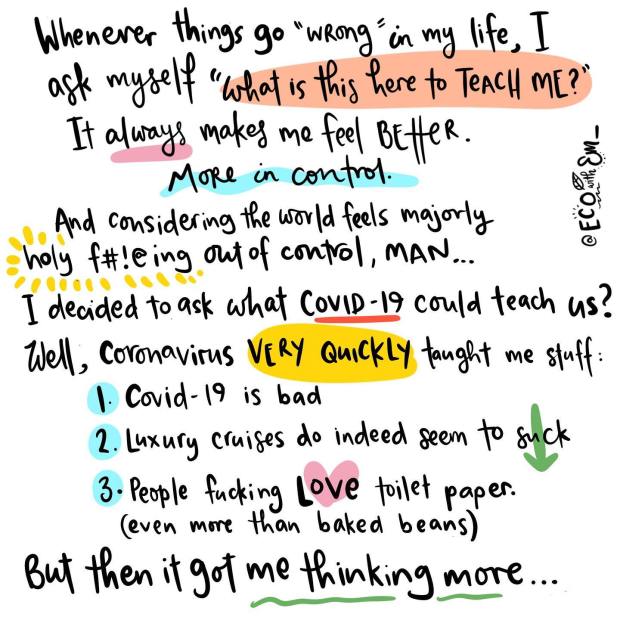 Whenever things go "wrong" in my life, I
ask myself "what is this here to TEACH ME?"
It always makes me feel BEttER.
MoRe in control.
And considering the world feels majorly
holy f#!@ing out of control, MAN...
I decided to ask what COVID-19 could teach us?
Well, Coronavirus VERY QUICKLY taught me stuff:
1. Covid-19 is bad
2. Luxury cruises do indeed seem to suck
3. People fucking LOVE toilet paper.
(even more than baked beans)
But then it got me thinking more...
@ECO with EM_